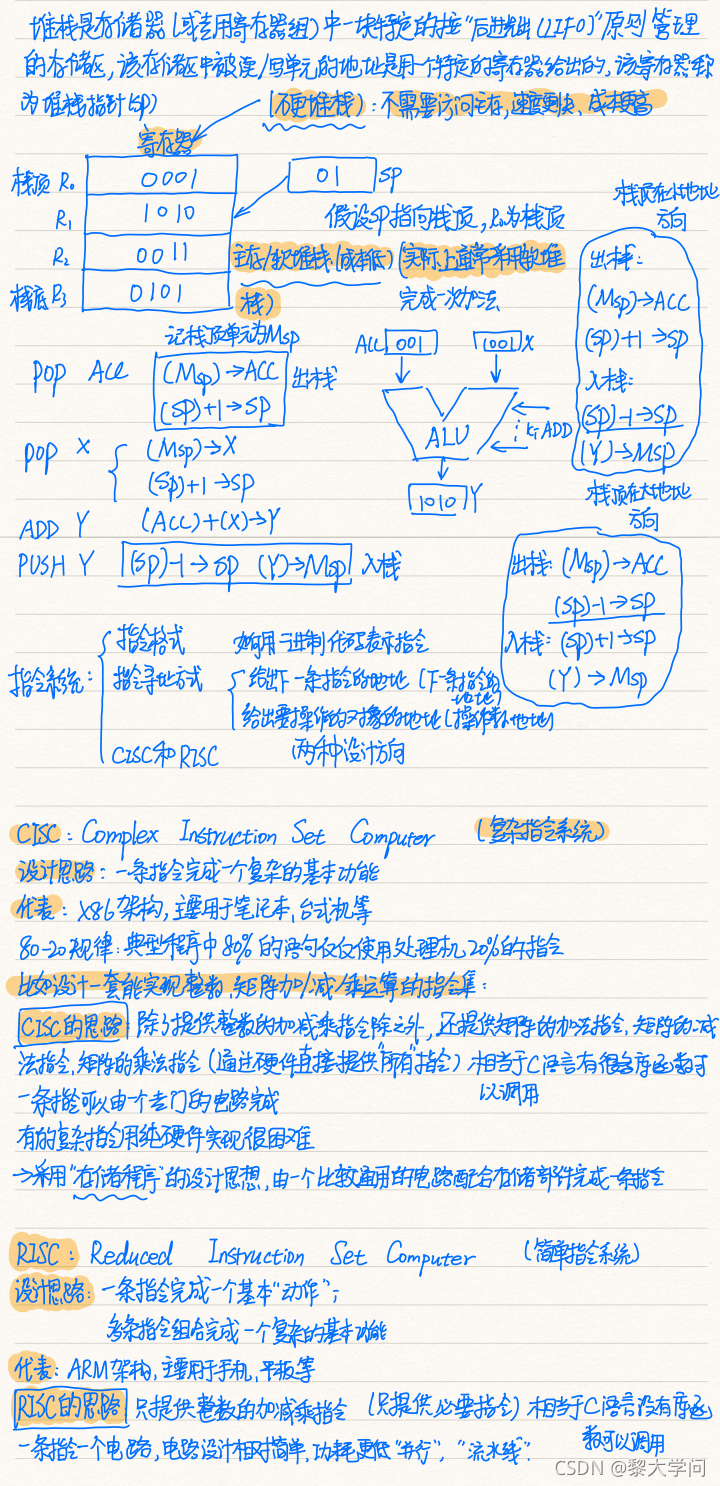 堆栈是存储器(或专用寄存器组)中一块特定的按"后进先出(LIFO)"原则管理
的存储区,该存储区中被读/写单元的地址是用一个特定的寄存器给出的,该寄存器称
为堆栈指针(SP)
(硬堆栈):不需要访问主存,速度更快、成本更高
寄存器
栈顶 R₀ 0001
R₁ 1010
R₂ 0011
栈底 R₃ 0101
01 SP
假设SP指向栈顶,R₀为栈顶
主存/软堆栈(成本低)(实际上通常采用软堆
栈)
完成一次加法
记栈顶单元为Msp
POP ACC (Msp)→ACC 出栈
(SP)+1→SP
POP X (Msp)→X
(SP)+1→SP
ADD Y (ACC)+(X)→Y
PUSH Y (SP)-1→SP (Y)→Msp 入栈
ACC 001
1001 X
ALU
K=ADD
1010 Y
栈顶在小地址
方向
出栈:
(Msp)→ACC
(SP)+1→SP
入栈:
(SP)-1→SP
(Y)→Msp
栈顶在大地址
方向
出栈:(Msp)→ACC
(SP)-1→SP
入栈:(SP)+1→SP
(Y)→Msp
指令系统:
指令格式 如何用二进制代码表示指令
指令寻址方式
给出下一条指令的地址(下一条指令的
地址)
给出要操作的对象的地址(操作数地址)
CISC和RISC 两种设计方向
CISC:Complex Instruction Set Computer (复杂指令系统)
设计思路:一条指令完成一个复杂的基本功能
代表:X86架构,主要用于笔记本,台式机等
80-20规律:典型程序中80%的语句仅仅使用处理机20%的指令
比如设计一套能实现整数,矩阵加/减/乘运算的指令集:
CISC的思路:除了提供整数的加减乘指令除之外,还提供矩阵的加法指令,矩阵的减
法指令,矩阵的乘法指令(通过硬件直接提供"所有"指令)相当于C语言有很多库函数可
以调用
一条指令可以由一个专门的电路完成
有的复杂指令用纯硬件实现很困难
→采用"存储程序"的设计思想,由一个比较通用的电路配合存储部件完成一条指令
RISC:Reduced Instruction Set Computer (简单指令系统)
设计思路:一条指令完成一个基本"动作";
多条指令组合完成一个复杂的基本功能
代表:ARM架构,主要用于手机,平板等
RISC的思路 只提供整数的加减乘指令 (只提供必要指令)相当于C语言没有库函
数可以调用
一条指令一个电路,电路设计相对简单,功耗更低"并行","流水线".
CSDN @黎大学问